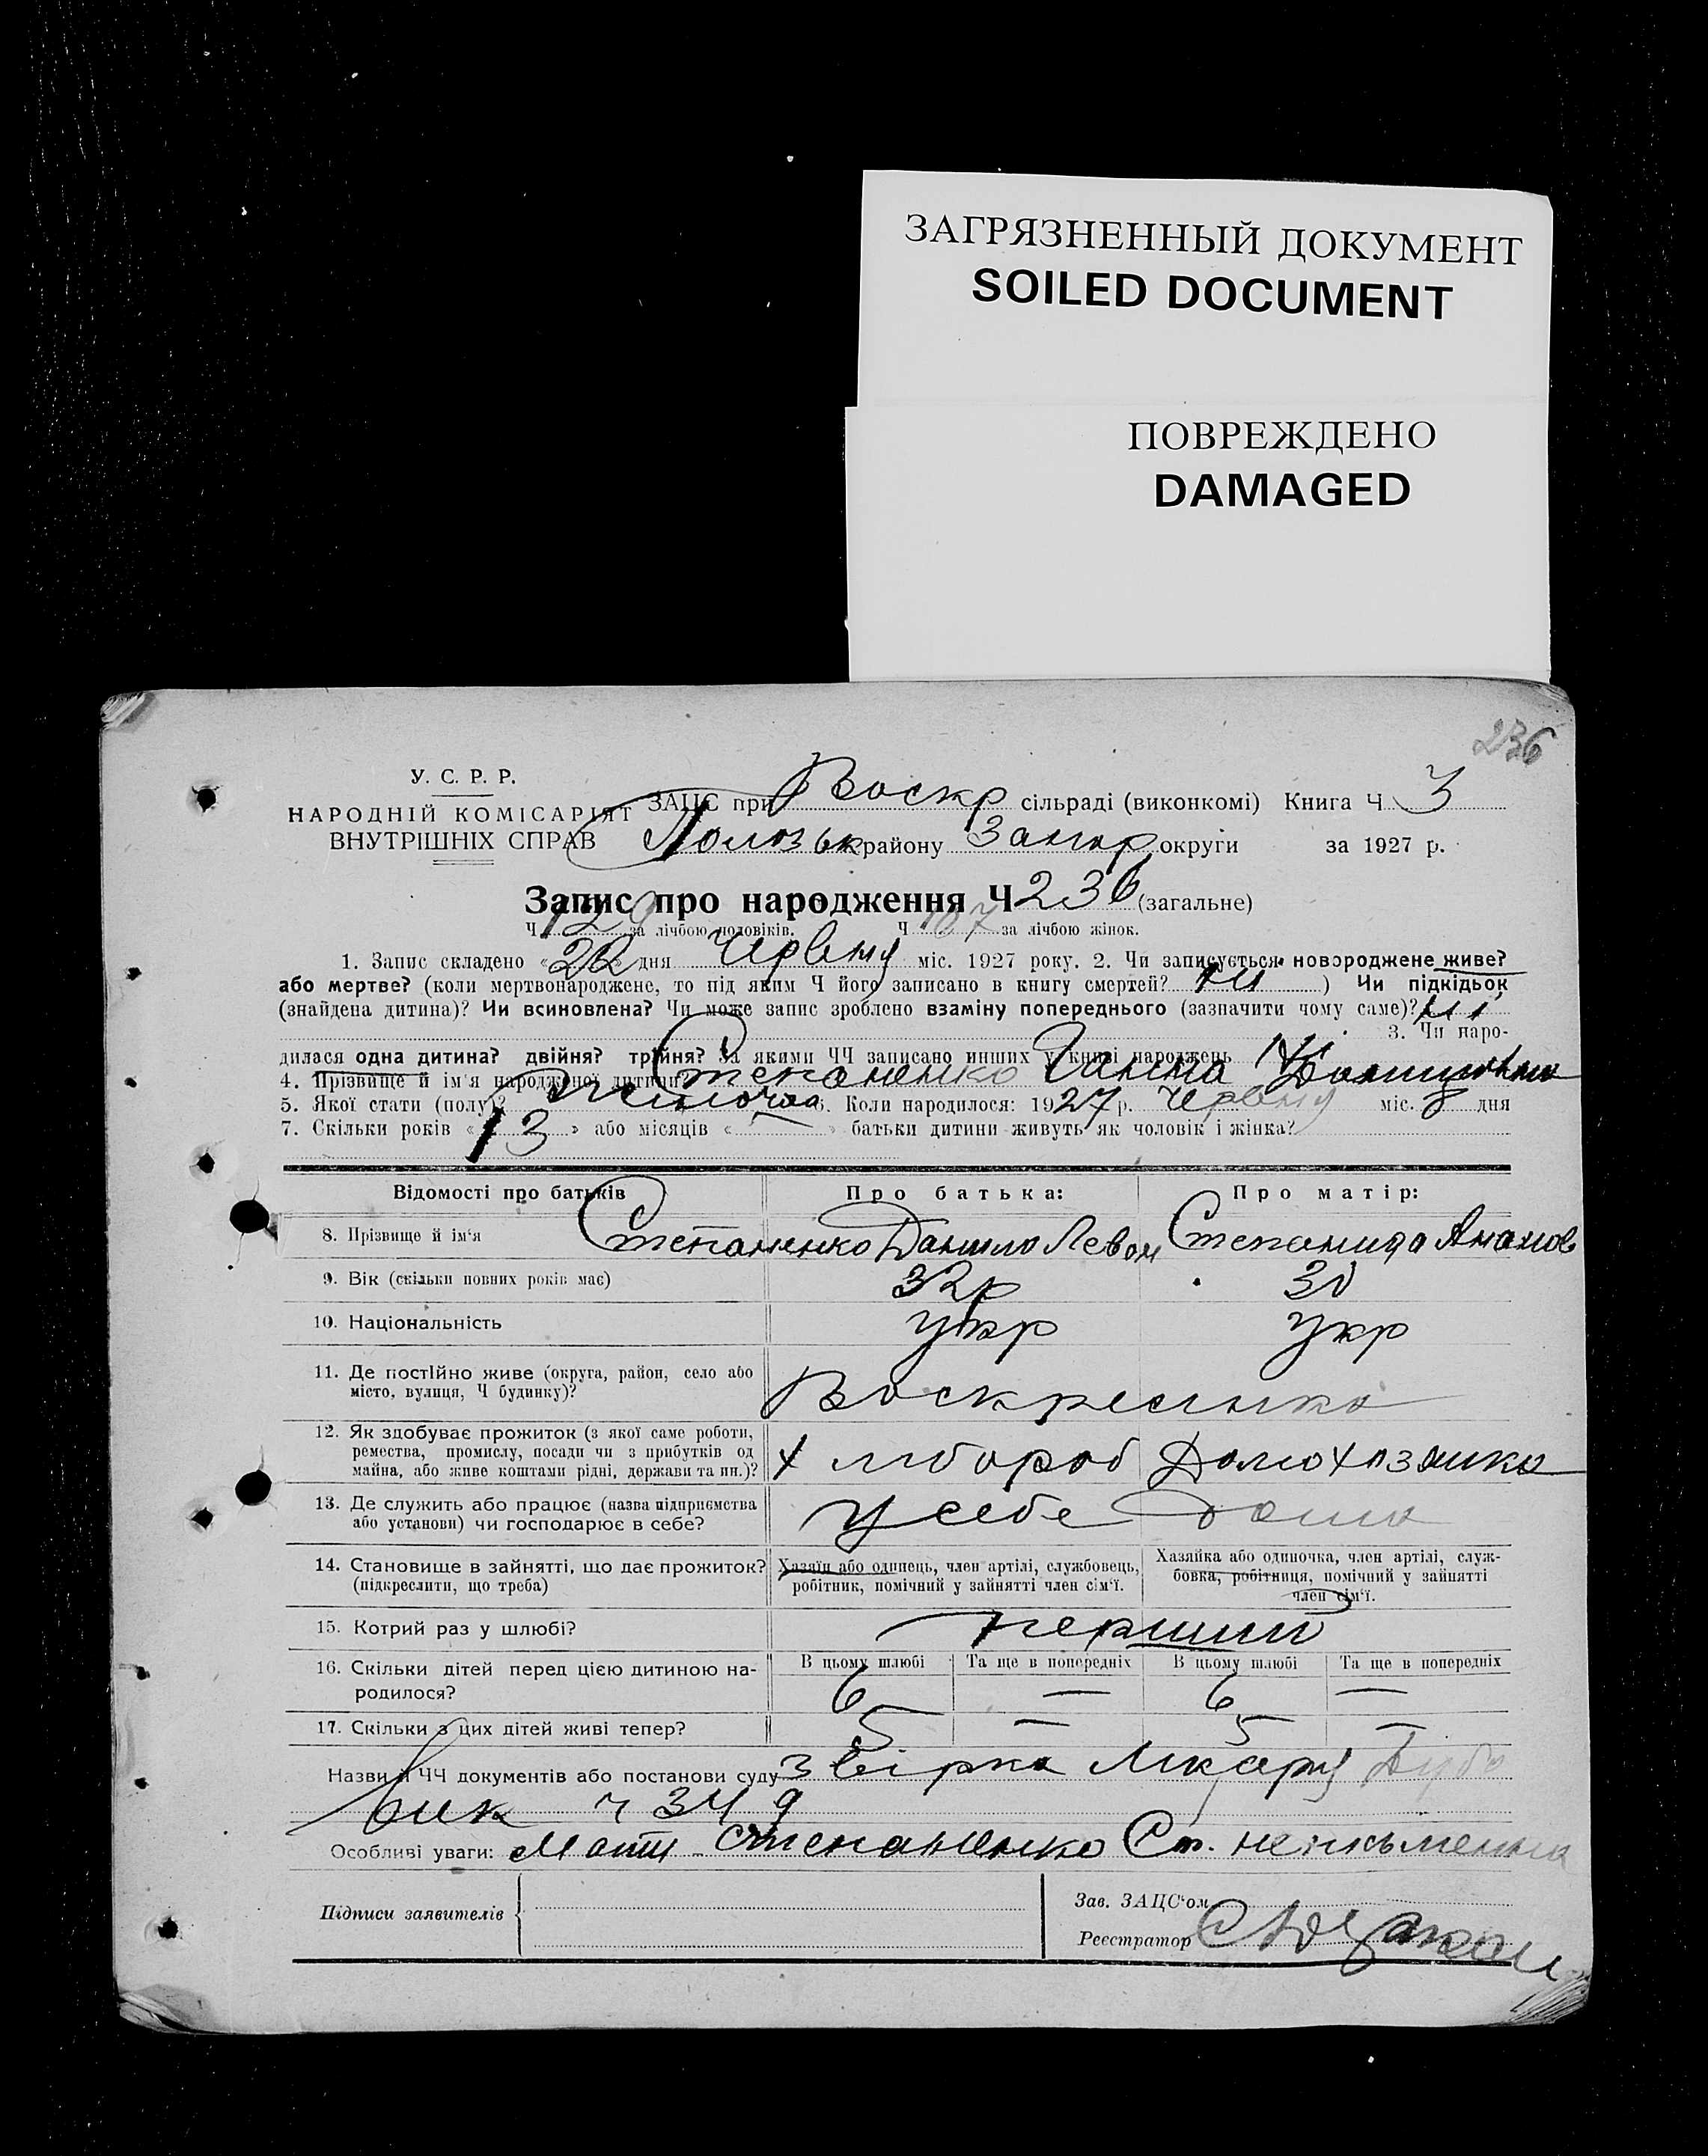 ЗАГРЯЗНЕННЫЙ ДОКУМЕНТ
SOILED DOCUMENT
ПОВРЕЖДЕНО
DAMAGED
236
У. С. Р. Р.
НАРОДНІЙ КОМІСАРІЯТ
ВНУТРІШНІХ СПРАВ
ЗАЦС при Воскр сільраді (виконкомі) Книга Ч 3
району Запор округи за 1927 р.
Запис про народження Ч 236 (загальне)
Ч 129 за лічбою чоловіків. Ч 107 за лічбою жінок.
1. Запис складено « » дня Червня міс. 1927 року. 2. Чи записується новороджене живе?
або мертве? (коли мертвонароджене, то під яким Ч його записано в книгу смертей? ні ) Чи підкідьок
(знайдена дитина)? Чи всиновлена? Чи може запис зроблено взаміну попереднього (зазначити чому саме)? ні
3. Чи наро-
дилася одна дитина? двійня? трійня? За якими ЧЧ записано инших у книзі народжень
4. Прізвище й ім'я народженої дитини? Степаненко Ганна
5. Якої стати (полу)? Жіноча 6. Коли народилося: 1927 р. Червня міс. 8 дня
7. Скільки років «13» або місяців « — » батьки дитини живуть як чоловік і жінка?
Відомості про батьків
Про батька:
Про матір:
8. Прізвище й ім'я Степаненко Данило Левон Степанида Аманов
9. Вік (скільки повних років має) 32р 30
10. Національність укр укр
11. Де постійно живе (округа, район, село або
місто, вулиця, Ч будинку)? Воскресенка
12. Як здобуває прожиток (з якої саме роботи,
ремества, промислу, посади чи з прибутків од
майна, або живе коштами рідні, держави та ин.)? Хлібороб Домохазяйка
13. Де служить або працює (назва підприємства
або установи) чи господарює в себе? У себе дома
14. Становище в зайнятті, що дає прожиток?
(підкреслити, що треба)
Хазяїн або одинець, член артілі, службовець,
робітник, помічний у зайнятті член сім'ї.
Хазяйка або одиночка, член артілі, служ-
бовка, робітниця, помічний у зайнятті
член сім'ї.
15. Котрий раз у шлюбі? перший
16. Скільки дітей перед цією дитиною на-
родилося?
В цьому шлюбі Та ще в попередніх В цьому шлюбі Та ще в попередніх
6 — 6 —
17. Скільки з цих дітей живі тепер? 5 — 5 —
Назви й ЧЧ документів або постанови суду звірка лікаря
ч 349
Особливі уваги: Мати Степаненко Ст. неписьменна
Підписи заявителів
Зав. ЗАЦС'ом
Реєстратор